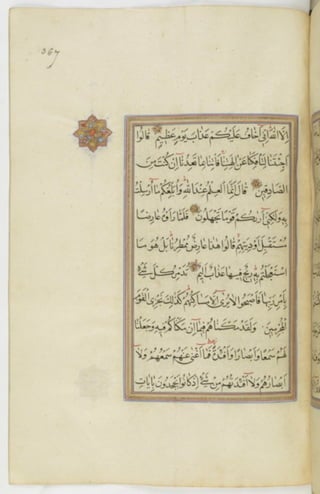 367
إِلَّا اللَّهَ إِنِّي أَخَافُ عَلَيْكُمْ عَذَابَ يَوْمٍ عَظِيمٍ قَالُوا
أَجِئْتَنَا لِتَأْفِكَنَا عَنْ آلِهَتِنَا فَأْتِنَا بِمَا تَعِدُنَا إِنْ كُنْتَ مِنَ
الصَّادِقِينَ قَالَ إِنَّمَا الْعِلْمُ عِنْدَ اللَّهِ وَأُبَلِّغُكُمْ مَا أُرْسِلْتُ
بِهِ وَلَكِنِّي أَرَاكُمْ قَوْمًا تَجْهَلُونَ فَلَمَّا رَأَوْهُ عَارِضًا
مُسْتَقْبِلَ أَوْدِيَتِهِمْ قَالُوا هَذَا عَارِضٌ مُمْطِرُنَا بَلْ هُوَ مَا
اسْتَعْجَلْتُمْ بِهِ رِيحٌ فِيهَا عَذَابٌ أَلِيمٌ تُدَمِّرُ كُلَّ شَيْءٍ
بِأَمْرِ رَبِّهَا فَأَصْبَحُوا لَا يُرَى إِلَّا مَسَاكِنُهُمْ كَذَلِكَ نَجْزِي الْقَوْمَ
الْمُجْرِمِينَ وَلَقَدْ مَكَّنَّاهُمْ فِيمَا إِنْ مَكَّنَّاكُمْ فِيهِ وَجَعَلْنَا
لَهُمْ سَمْعًا وَأَبْصَارًا وَأَفْئِدَةً فَمَا أَغْنَى عَنْهُمْ سَمْعُهُمْ وَلَا
أَبْصَارُهُمْ وَلَا أَفْئِدَتُهُمْ مِنْ شَيْءٍ إِذْ كَانُوا يَجْحَدُونَ بِآيَاتِ